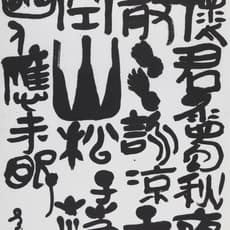 懷君屬秋夜
散步詠涼天
山松子落
應未眠